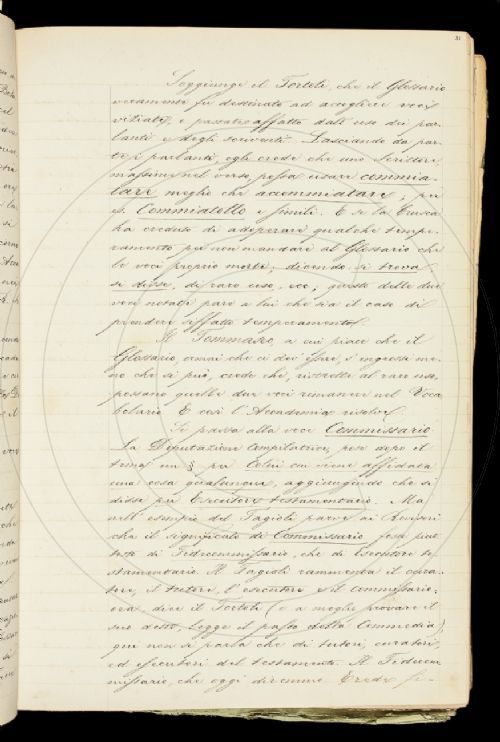 31
Soggiunge il Torteli, che il Glossario
veramente fu destinato ad accogliere voci
viziate, e passate affatto dall'uso dei par-
lanti e degli scriventi. Lasciando da par-
te i parlanti, egli crede che uno scrittore
massime nel verso, possa usare commia-
tare meglio che accommiatare; per
es. Commiatollo e simili. E se la Crusca
ha creduto di adoperare qualche tempe-
ramento per non mandare al Glossario che
le voci proprio morte, dicendo si trova
si disse, di raro uso, ecc; queste delle due
voci notate pare a lui che sia il caso di
prendere siffatto temperamento.
Il Tommaseo, a cui piace che il
Glossario, omai che ci dee essere, s'ingrossi me-
no che si può, crede che, ristretti al raro uso,
possano quelle due voci rimanere nel Voca
bolario. E così l'Accademia risolve.
Si passa alla voce Commissario.
La Deputazione compilatrice, pose dopo il
tema un § per Colui cui viene affidata
una cosa qualunque, aggiungendo che si
disse per Esecutore testamentario. Ma
nell'esempio del Fagioli parve ai Revisori
che il significato di Commissario fosse piut
tosto di Fidecommissario, che di Esecutore te
stamentario. Il Fagioli rammenta il cura-
tore, il tutore, l'esecutore e il commissario;
ora, dice il Torteli (e a meglio provare il
suo detto, legge il passo della Commedia),
qui non si parla che di tutori, curatori,
ed esecutori del testamento. Il Fidecom
missario, che oggi diremmo Erede fi-